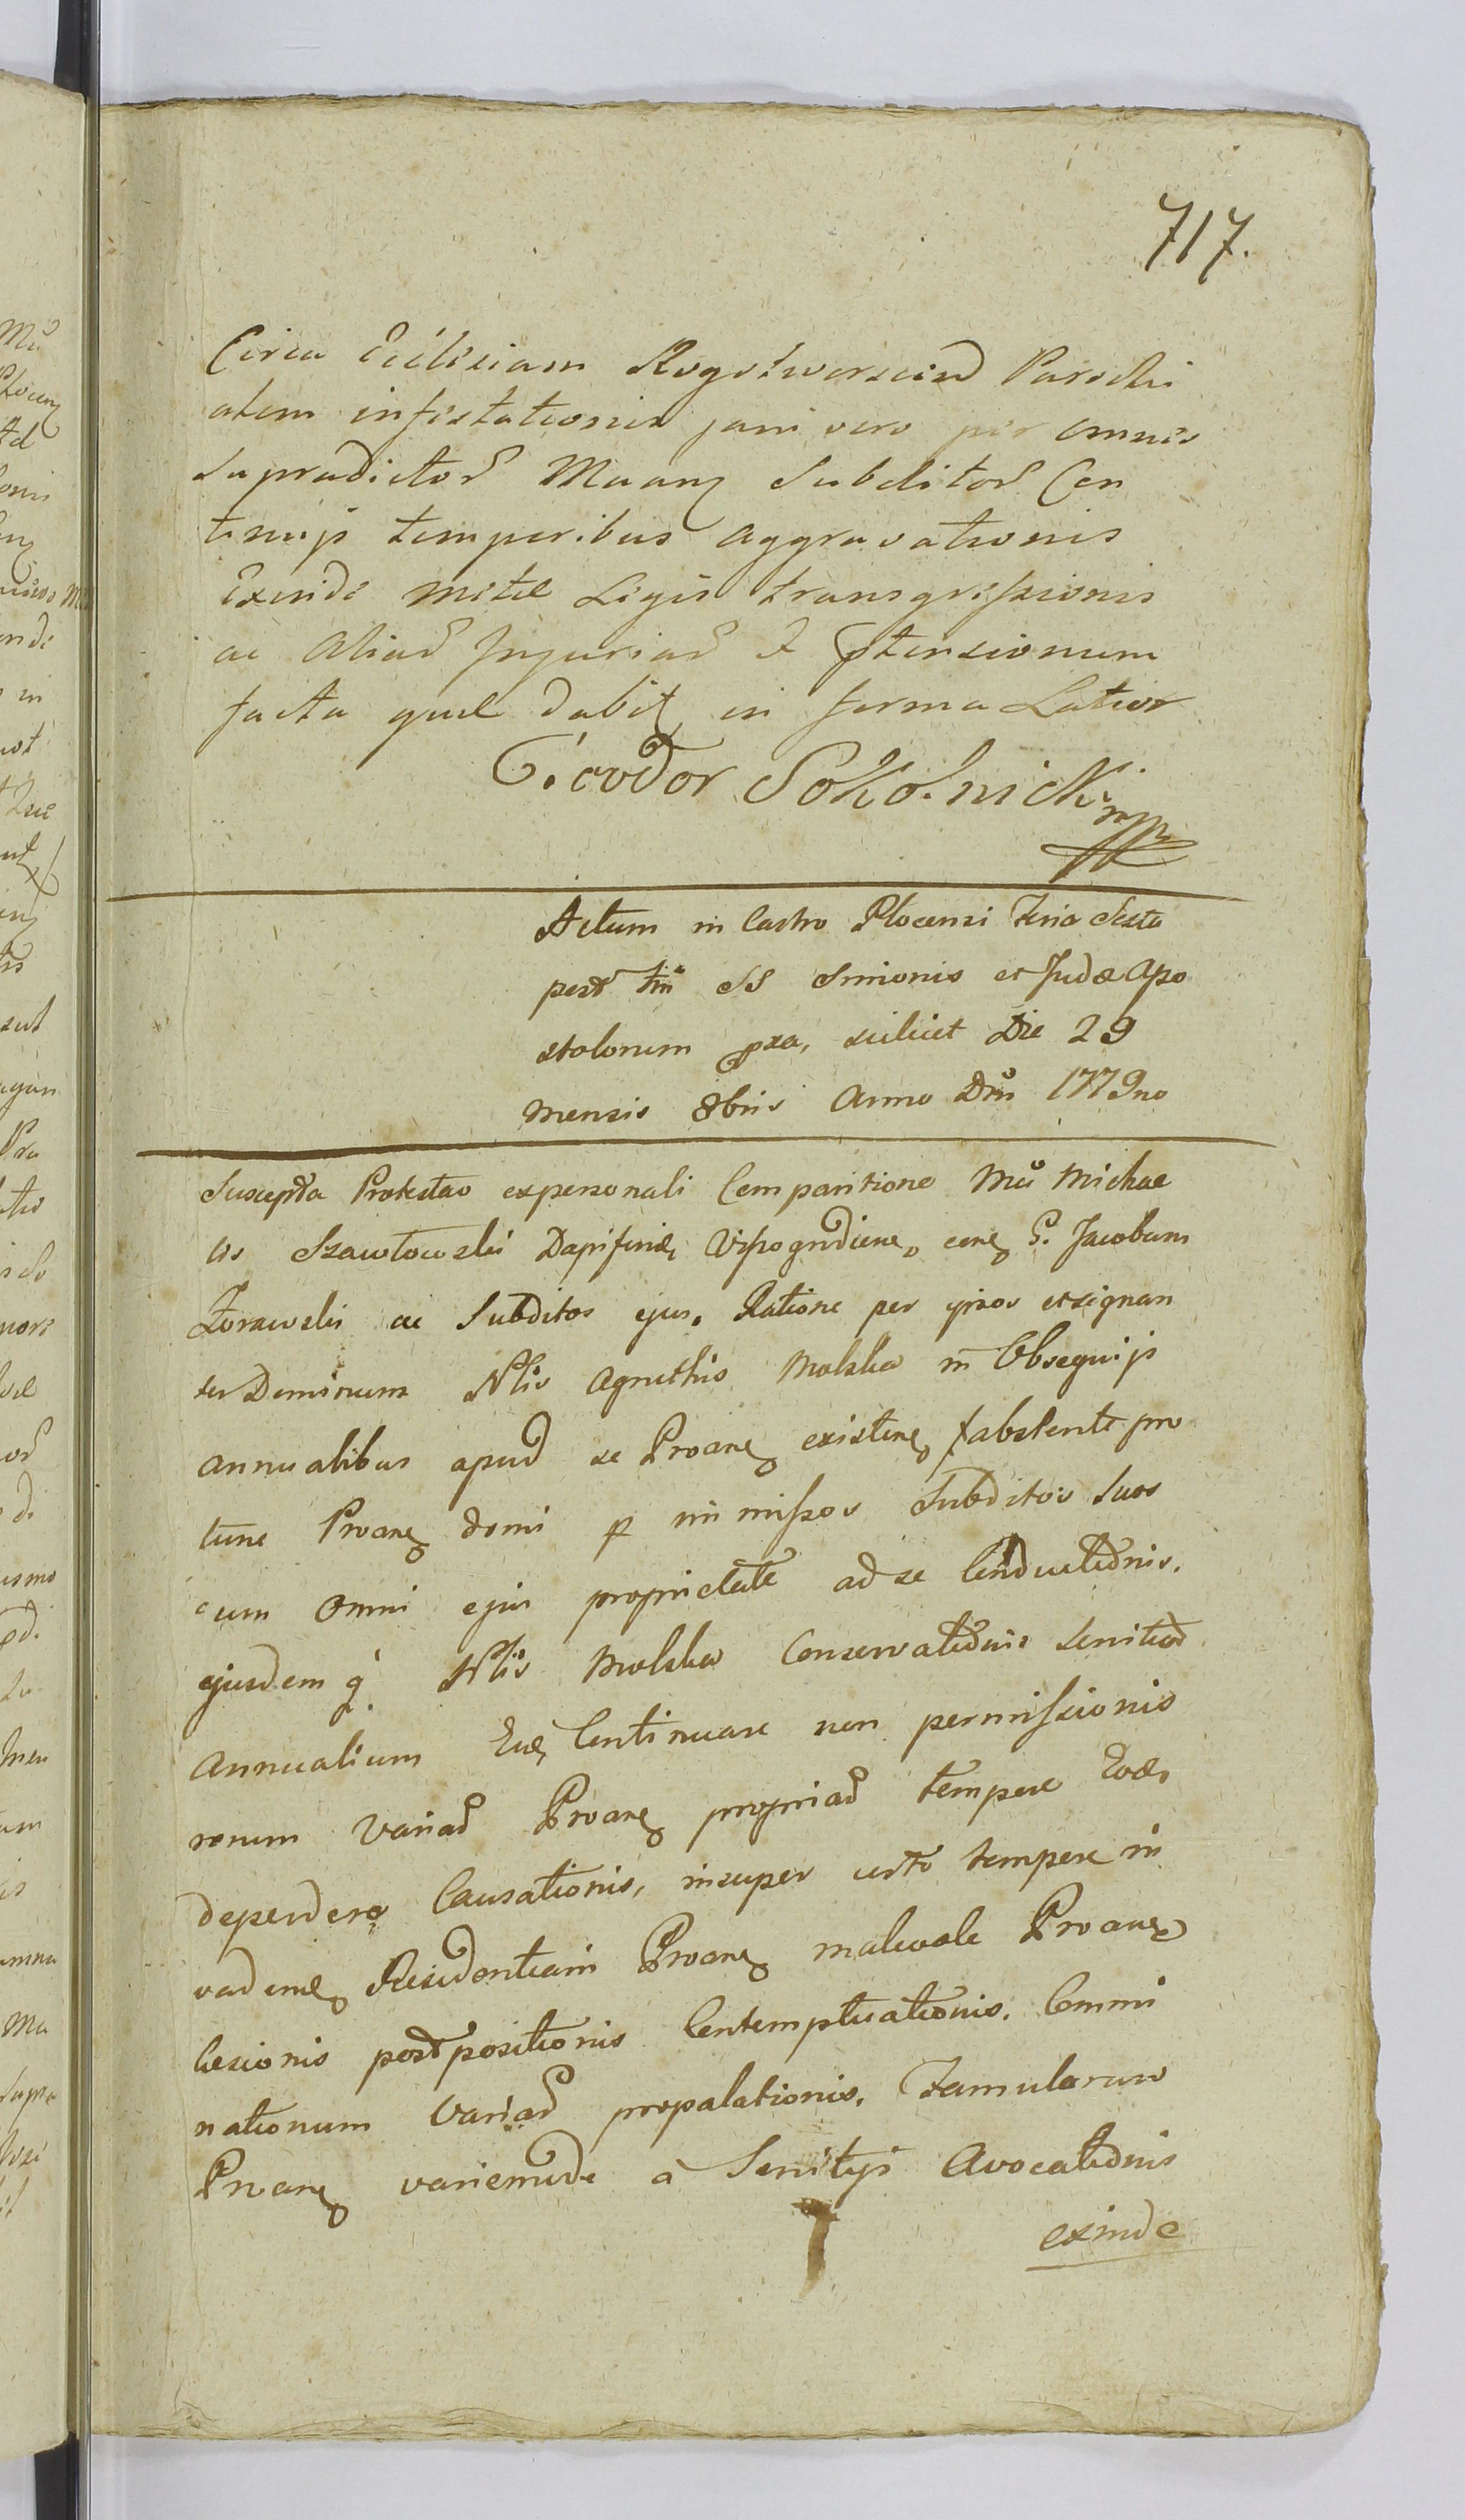 717.
Circa Ecclesiam Rogotworscien Parochi
alem infestationis jam vero per omnes
Supradictor Muanz Subditor Con
tinuijs temporibus aggravationis
Exinde metae Legis transgressionis
ac aliar Injuriar et ptensionum
facta quae dabit in forma Latior
Teodor Sokolnicki mpp
Actum in Castro Plocensi Feria Sexta
post ftm SS Simonis et Judae Apo
stolorum pxa, scilicet Die 29
mensis 8bris Anno Dni 1779no
Suscepta Protestao expersonali Comparitione Mci Michae
lis Szawłowski Dapiferidae Wyszogrodiene, cone G. Jacobum
Zorawski ac Subditos ejus. Ratione per ipsos et signan
ter Dominum Nlis Agnethis Molska in Obsequijs
annualibus apud se Proane existene, absente pro
tunc Proane domi p immissos Subditos suos
cum omni ejus proprietate ad se Conductionis.
ejusdem q Nlis Molska Conservationis Servitior
Annualium Eidae Continuare non permissionis
rerum variar Proane propriar tempore Eode
deperdere Causationis, insuper certo tempore in
vadene Residentiam Proane malevole Proane
laesionis postpositionis Contemptuationis. Commi
nationum variar propalationis. Famulorum
Proane variemode a Servitijs Avocationis
exinde